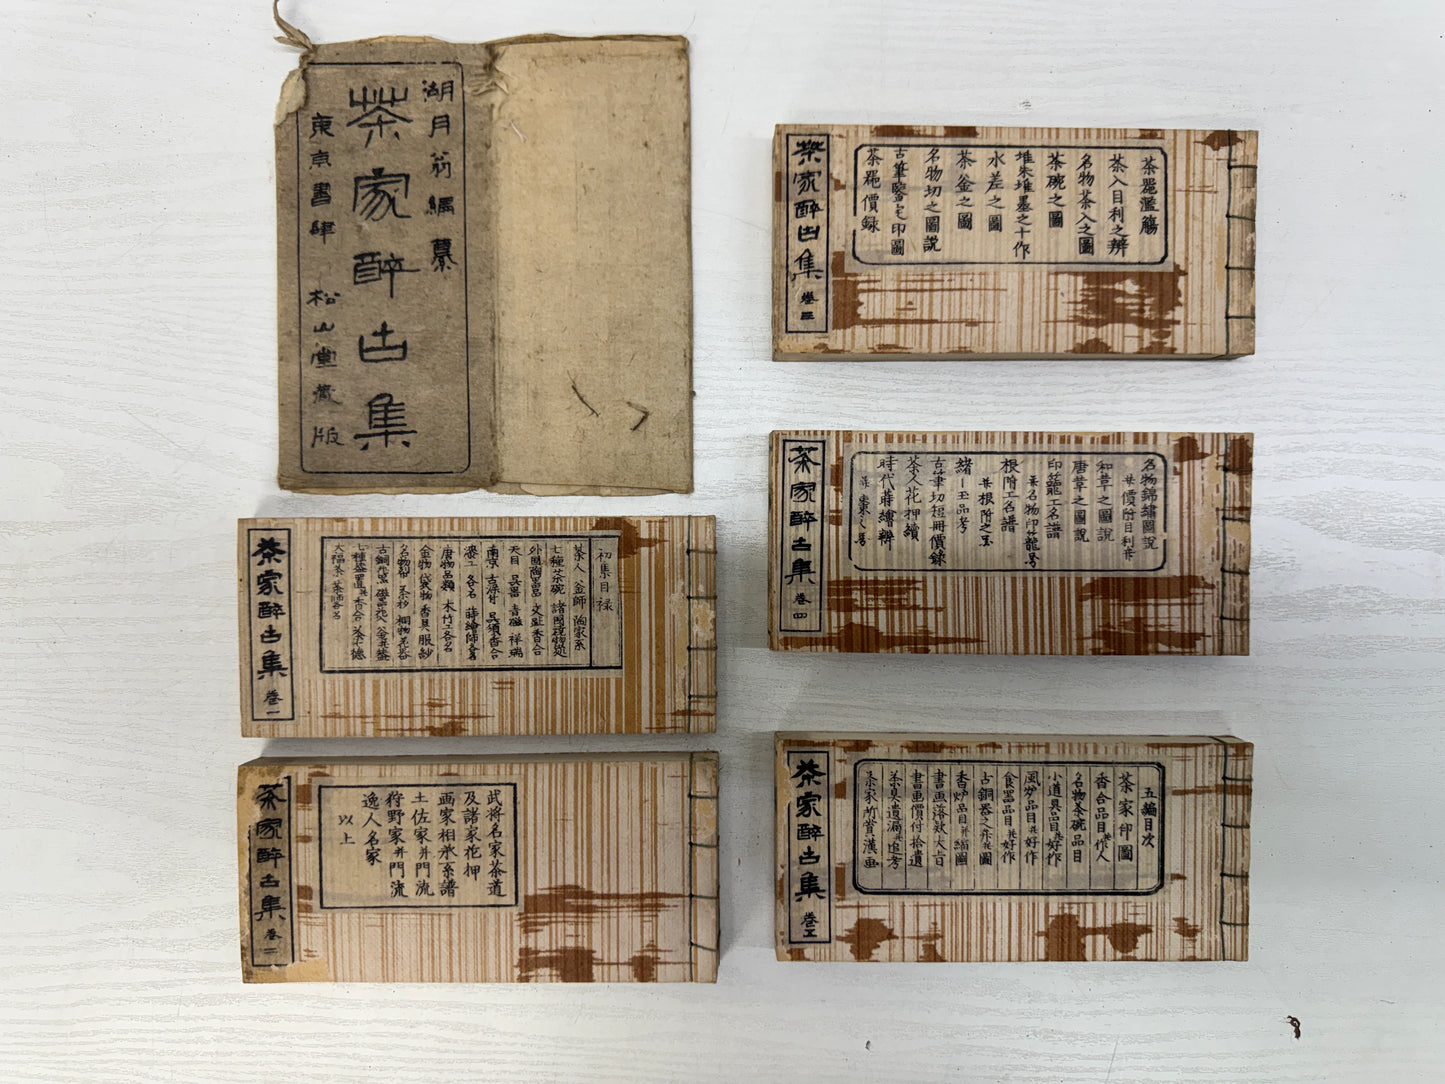 湖月翁編纂
茶家酔古集
東京書肆 松山堂蔵版
茶家酔古集 巻一
初集目禄
茶人 釜師 陶家系
七種茶碗 諸國焼物処
外國陶器昌 文 香合
天目 呉器 青磁 祥瑞
南京 古染付 呉須香合
塗工各名 蒔繪師名
唐物品類 木竹工各名
金物 袋物 香具 服紗
名物 茶杓 桐物 花器
茶家酔古集 巻二
武将名家茶道
及諸家花押
画家相承系譜
土佐家并門流
狩野家并門流
逸人名家
以上
茶家酔古集 巻三
茶噐濫觴
茶入目利之辨
名物茶入之圖
茶碗之圖
堆朱堆墨之十作
水差之圖
茶釜之圖
名物切之圖説
古筆鑒定印圖
茶噐價録
茶家酔古集 巻四
名物錦繡圖説
并價附目利并
和莩之圖説
唐莩之圖説
印籠工名譜
并名物印籠号
根附工名譜
并根附之圣
緒〆玉品考
古筆切短冊價録
茶人花押續
時代蒔繪辨
茶家酔古集 巻五
五編目次
茶家印圖
香合品目并作人
名物茶碗品目
小道具品目并好作
風炉品目并好作
食器品目并好作
古銅器之弁并圖
香炉品目并縮圖
書画落款大旨
書画價付拾遺
茶具遺漏并追考
茶家所賞漢画